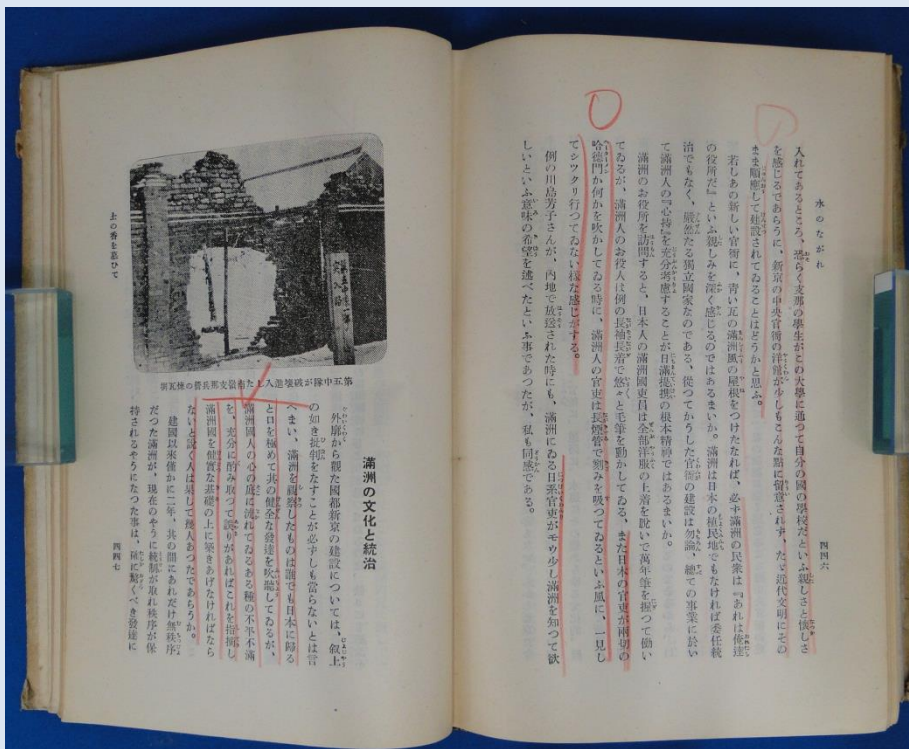 水のながれ
四四六
入れてあるところ、恐らく支那の學生がこの大學に通つて自分の國の學校だといふ親しさと懷しさ
を感じるであらうに、新京の中央官衙の洋館が少しもこんな點に留意されず、たゞ近代文明にその
まま順應して建設されてゐることはどうかと思ふ。
若しあの新しい官衙に、靑い瓦の滿洲風の屋根をつけたなれば、必ず滿洲の民衆は『あれは俺達
の役所だ』といふ親しみを深く感じるのではあるまいか。滿洲は日本の植民地でもなければ委任統
治でもなく、嚴然たる獨立國家なのである、從つてかうした官衙の建設は勿論、總ての事業に於い
て滿洲人の『心持』を充分考慮することが日滿提携の根本精神ではあるまいか。
滿洲のお役所を訪問すると、日本人の滿洲國吏員は全部洋服の上着を脫いで萬年筆を握つて働い
てゐるが、滿洲人のお役人は例の長袖長着で悠々と毛筆を動かしてゐる、また日本人官吏が兩切の
哈德門か何かを吹かしてゐる時に、滿洲人の官吏は長煙管で刻みを吸つてゐるといふ風に、一見し
てシツクリ行つてゐない樣な感じがする。
例の川島芳子さんが、內地で放送された時にも、滿洲にゐる日系官吏がモウ少し滿洲を知つて欲
しいといふ意味の希望を述べたといふ事であつたが、私も同感である。
第五中隊が破壞進入したた南嶺支那兵營の煉瓦塀
滿洲の文化と統治
外廓から觀た國都新京の建設については、叙上
の如き批判をなすことが必ずしも當らないとは言
へまい、滿洲を視察したものは誰でも日本に歸る
と口を極めて其の健全な發達を吹聽してゐるが、
滿洲國人の心の底に流れてゐるある種の不平不滿
を、充分に酌み取つて誤りがあればこれを指摘し
滿洲國を健實な基礎の上に築きあげなければなら
ないと說く人は果して幾人あつたであらうか。
建國以來僅かに二年、其の間にあれだけ無秩序
だつた滿洲が、現在のやうに統制が取れ秩序が保
持されるやうになつた事は、確に驚くべき發達に
土の香を慕ひて
四四七